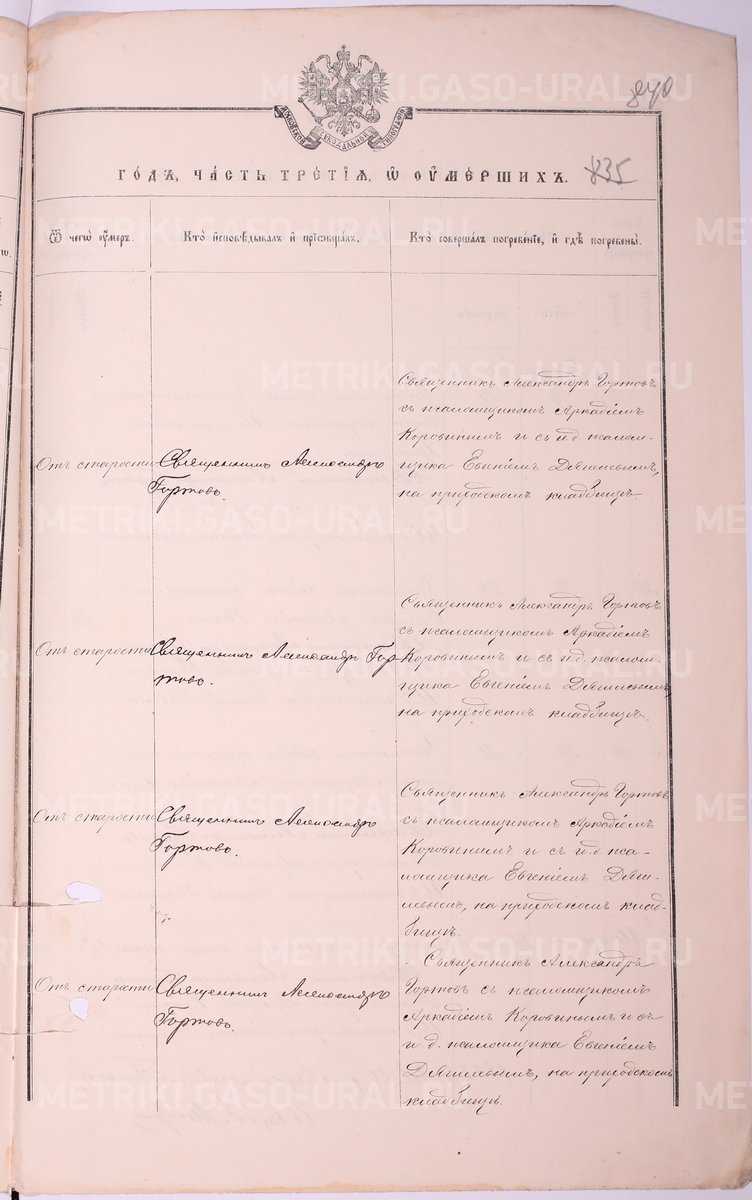 840
МОСКОВСКОЙ СѴНОДАЛЬНОЙ ТИПОГРАФІИ
ГОДЪ, ЧАСТЬ ТРЕТІЯ, Ѿ ОУМЕРШИХЪ.
835
Ѿ чегѡ оумеръ.
Кто исповѣдывалъ и прїѡбщалъ.
Кто совершалъ погребенїе, и гдѣ погребены.
Отъ старости
Священникъ Александръ
Гортовъ.
Священникъ Александръ Гортовъ
съ псаломщикомъ Аркадіемъ
Коровинымъ и съ и.д. псалом-
щика Евгеніемъ Дягилевымъ,
на приходскомъ кладбищѣ.
Отъ старости
Священникъ Александръ Гор
товъ.
Священникъ Александръ Гортовъ
съ псаломщикомъ Аркадіемъ
Коровинымъ и съ и.д. псалом
щика Евгеніемъ Дягилевымъ
на приходскомъ кладбищѣ.
Отъ старости
Священникъ Александръ
Гортовъ.
Священникъ Александръ Гортовъ
съ псаломщикомъ Аркадіемъ
Коровинымъ и съ и.д. пса-
ломщика Евгеніемъ Дяги-
левымъ, на приходскомъ клад-
бищѣ.
Отъ старости
Священникъ Александръ
Гортовъ.
Священникъ Александръ
Гортовъ съ псаломщикомъ
Аркадіемъ Коровинымъ и съ
и.д. псаломщика Евгеніемъ
Дягилевымъ, на приходскомъ
кладбищѣ.
METRIKI.GASO-URAL.RU